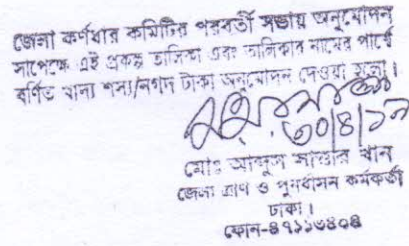 জেলা কর্ণধার কমিটির পরবর্তী সভায় অনুমোদন
সাপেক্ষে এই প্রকল্প তালিকা এবং তালিকার নামের পার্শ্বে
বর্ণিত খাদ্য শস্য/নগদ টাকা অনুমোদন দেওয়া হলো।
৩০/৪/১৯
মোঃ আব্দুস সাত্তার খান
জেলা ত্রাণ ও পুনর্বাসন কর্মকর্তা
ঢাকা।
ফোন-৪৭১১৩৪০৪